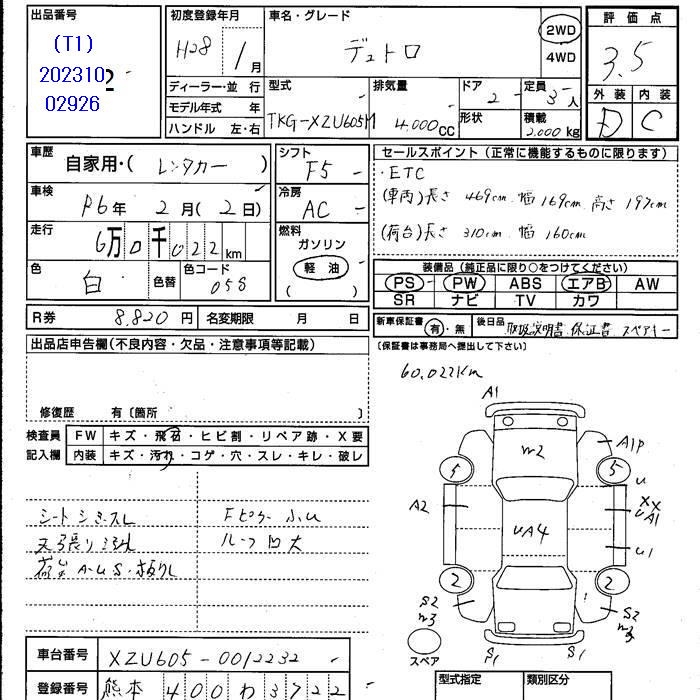 出品番号
(T1)
202310
02926
初度登録年月
H28 1月
車名・グレード
デュトロ
2WD
4WD
評価点
3.5
外装 内装
D C
ディーラー・並行
モデル年式 年
ハンドル 左・右
型式
TKG-XZU605M
排気量
4.000CC
ドア
2
形状
定員
3人
積載
2.000kg
車歴
自家用・(レンタカー)
車検
R6年 2月(2日)
走行
6万0千022km
色
白
色替
色コード
058
シフト
F5
冷房
AC
燃料
ガソリン
軽油
( )
セールスポイント(正常に機能するものに限ります)
・ETC
(車両)長さ 469cm 幅 169cm 高さ 197cm
(荷台)長さ 310cm 幅 160cm
装備品(純正品に限り○をつけてください)
PS PW ABS エアB AW
SR ナビ TV カワ
R券 8,820円 名変期限 月 日
新車保証書 有・無
後日品 取扱説明書 保証書 スペアキー
(保証書は事務局へ提出して下さい)
出品店申告欄(不良内容・欠品・注意事項等記載)
修復歴 有〔箇所 〕
60,022Km
検査員
記入欄
FW キズ・飛石・ヒビ割・リペア跡・X要
内装 キズ・汚れ・コゲ・穴・スレ・キレ・破レ
シートシミ・スレ
Fピラー小U
ルーフ凹大
荷台A・U・S・板ワレ
A1
m2
A1P
5
5
U
A2
XX
UA1
UA4
U1
2
2
S2
m3
S2
m3
S1
S1
スペア
車台番号 XZU605-0012232
登録番号 熊本 400わ3722
型式指定
類別区分